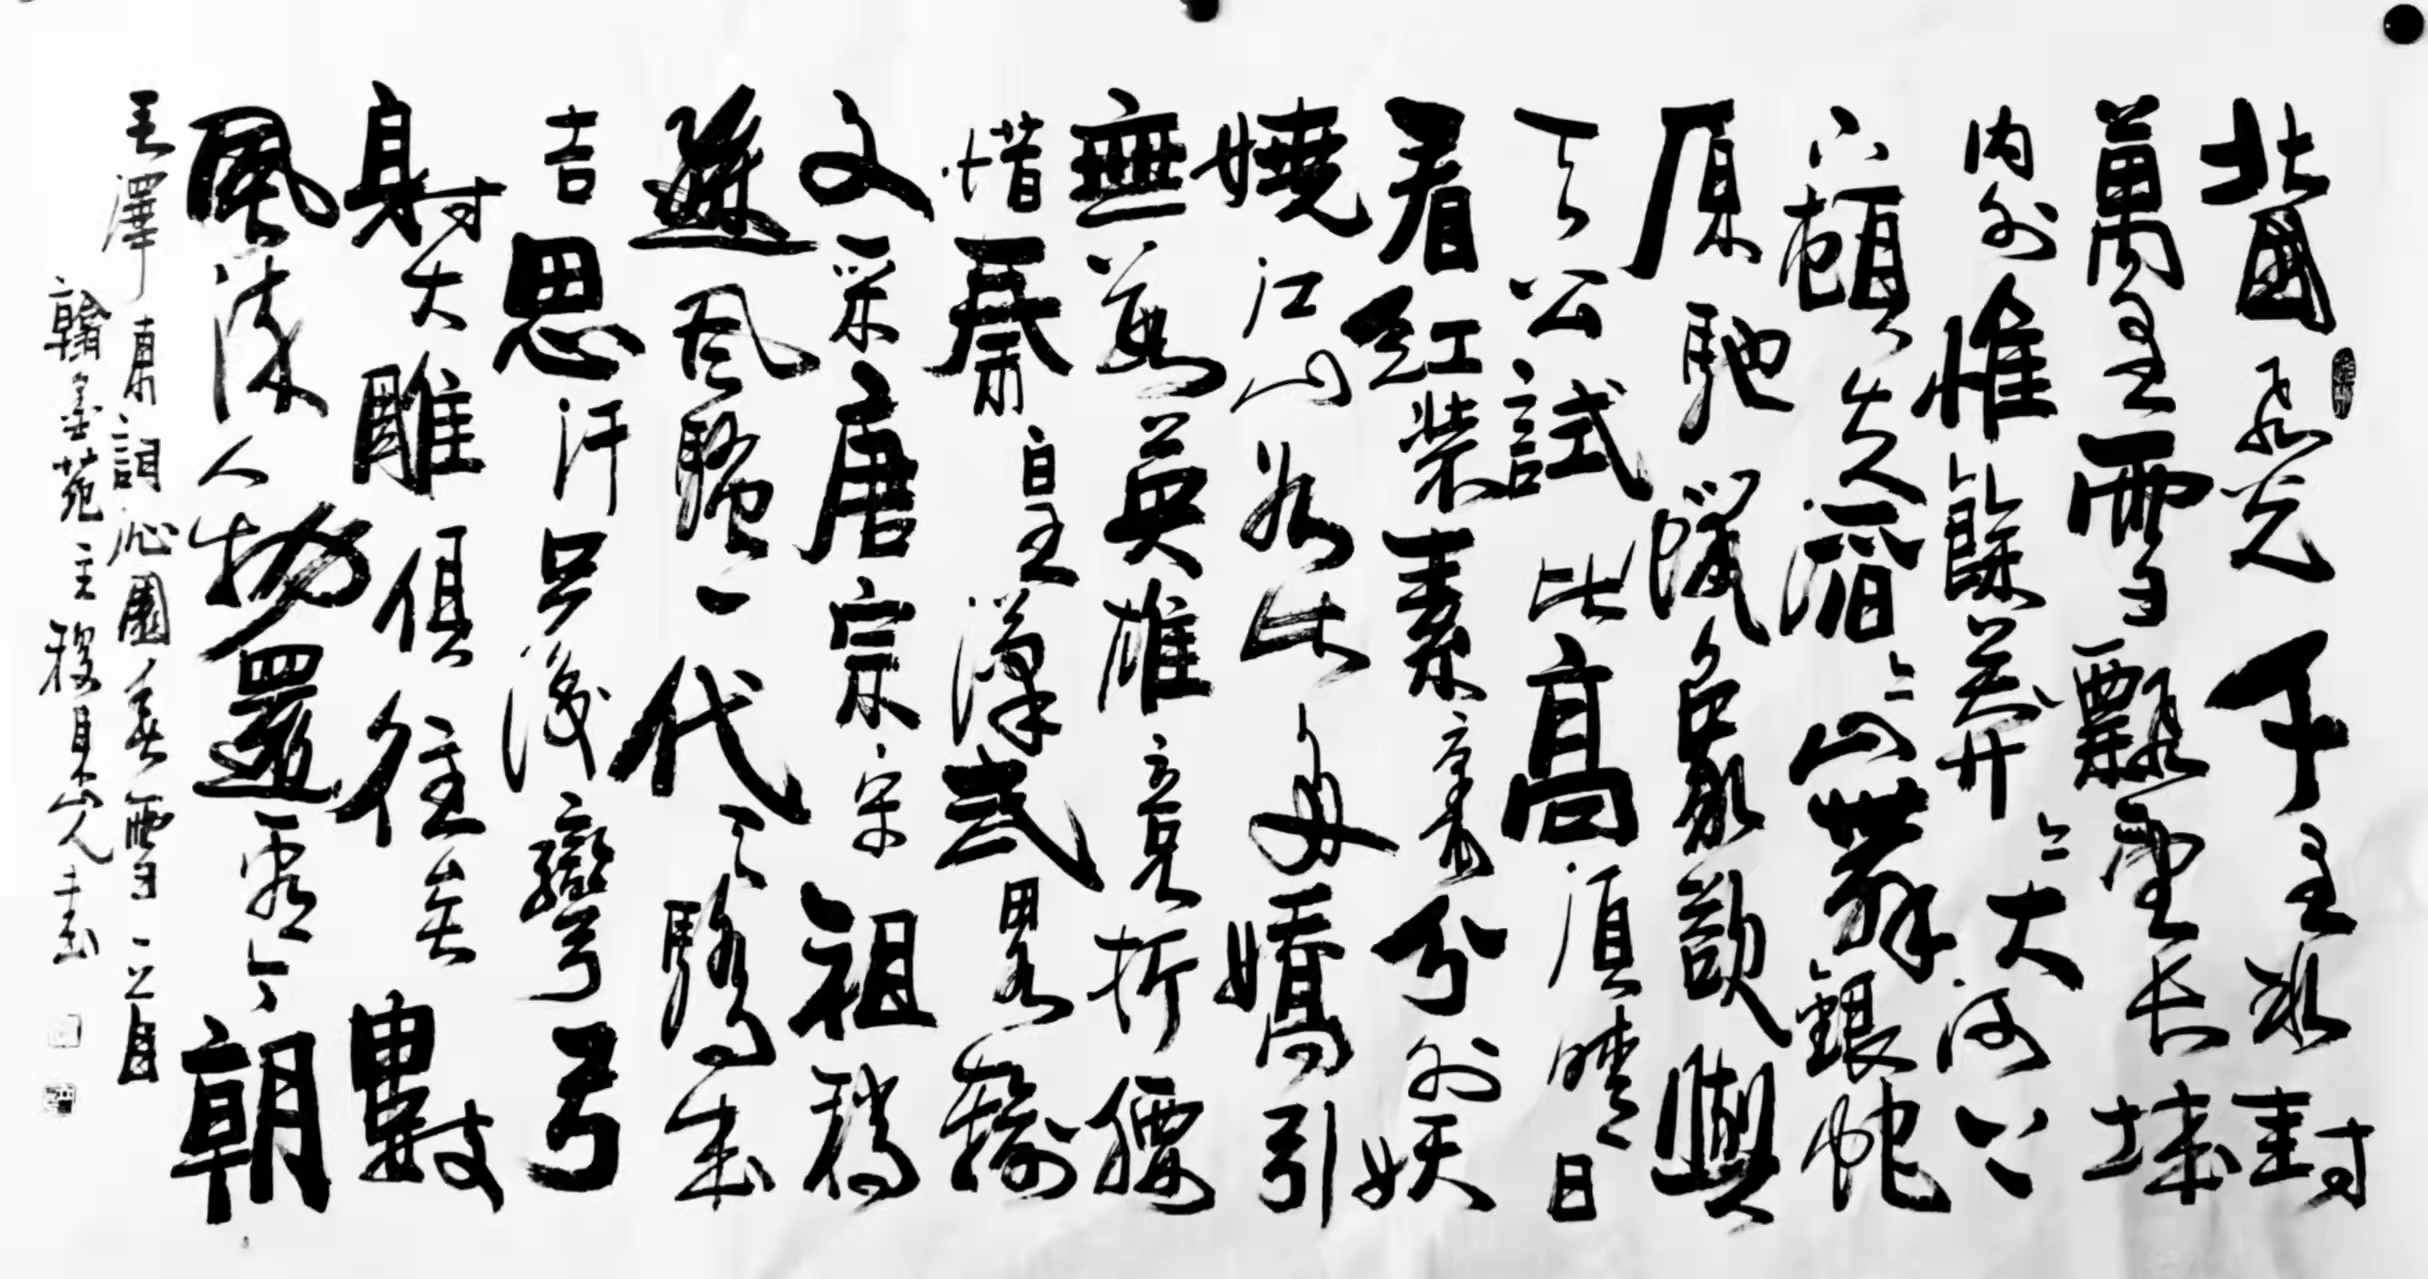 北國風光千里冰封
萬里雪飄望长城
内外惟餘莽〻大河上
下頓失滔〻山舞銀蛇
原馳蠟象欲與
天公試比高須晴日
看紅裝素裹分外妖
嬈江山如此多嬌引
無數英雄競折腰
惜秦皇漢武略輸
文采唐宗宋祖稍
遜风騷一代天驕成
吉思汗只識彎弓
射大雕俱往矣數
風流人物還看今朝
毛澤東詞沁園春雪一首
翰墨苑主山人書